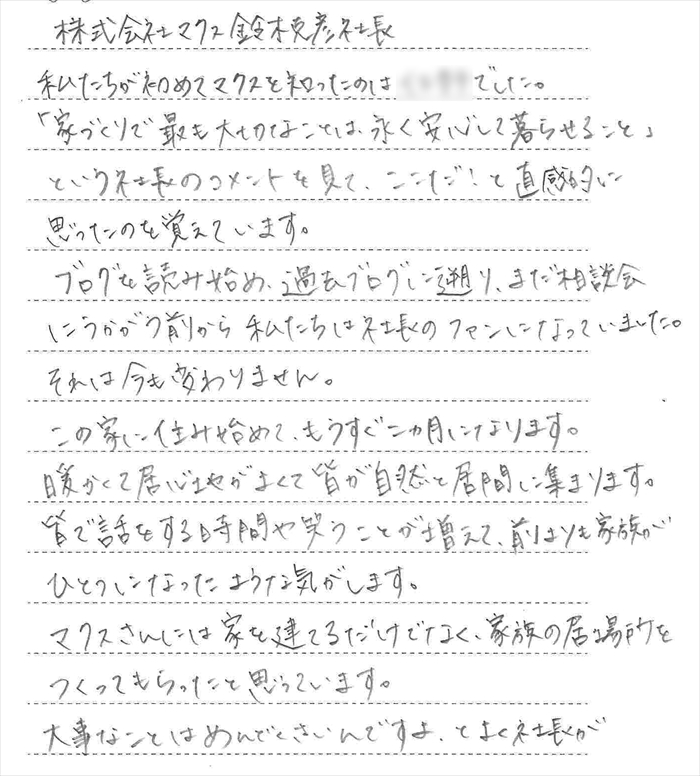 株式会社マクス鈴木克彦社長
私たちが初めてマクスを知ったのは でした。
「家づくりで最も大切なことは、永く安心して暮らせること」
という社長のコメントを見て、ここだ!と直感的に
思ったのを覚えています。
ブログを読み始め、過去ブログに遡り、まだ相談会
にうかがう前から私たちは社長のファンになっていました。
それは今も変わりません。
この家に住み始めて、もうすぐ二ヵ月になります。
暖かくて居心地がよくて皆が自然と居間に集まります。
皆で話をする時間や笑うことが増えて、前よりも家族が
ひとつになったような気がします。
マクスさんには家を建てるだけでなく、家族の居場所を
つくってもらったと思っています。
大事なことはめんどくさいんですよ、とよく社長が